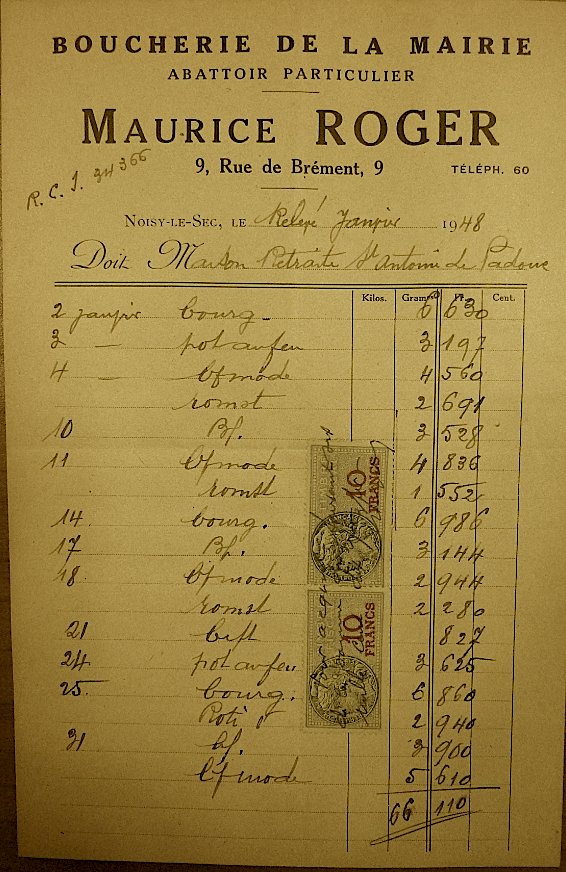 BOUCHERIE DE LA MAIRIE
ABATTOIR PARTICULIER
MAURICE ROGER
9, Rue de Brément, 9 TÉLÉPH. 60
R. C. S. 34366
NOISY-LE-SEC, LE Relevé Janvier 1948
Doit Maison Retraite St Antoine de Padoue
Kilos. Grammes Fr. Cent.
2 janvier bourg. 6 630
3 — pot au feu 3 197
4 — bf mode 4 560
romst 2 691
10 Bf. 3 528
11 bf mode 4 836
romst 1 552
14 bourg. 6 986
17 Bf. 3 144
18 bf mode 2 944
romst 2 280
21 bift 827
24 pot au feu 3 625
25 bourg. 6 860
Roti 2 940
31 bf. 3 900
bf mode 5 610
66 110
10 FRANCS
10 FRANCS